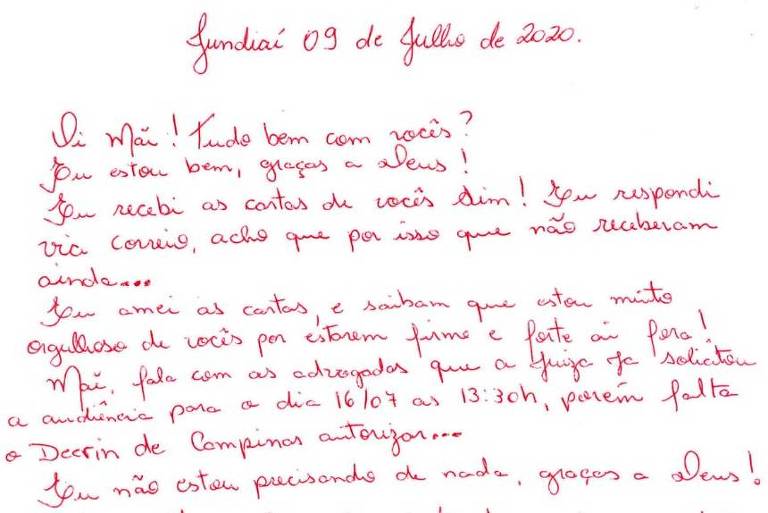 Jundiaí 09 de Julho de 2020.
Oi Mãe! Tudo bem com vocês?
Eu estou bem, graças a Deus!
Eu recebi as cartas de vocês sim! Eu respondi
via correio, acho que por isso que não receberam
ainda...
Eu amei as cartas, e saibam que estou muito
orgulhoso de vocês por estarem firme e forte aí fora!
Mãe, fala com as advogadas que a Juíza já solicitou
a audiência para o dia 16/07 as 13:30h, porém falta
o Decrin de Campinas autorizar...
Eu não estou precisando de nada, graças a Deus!